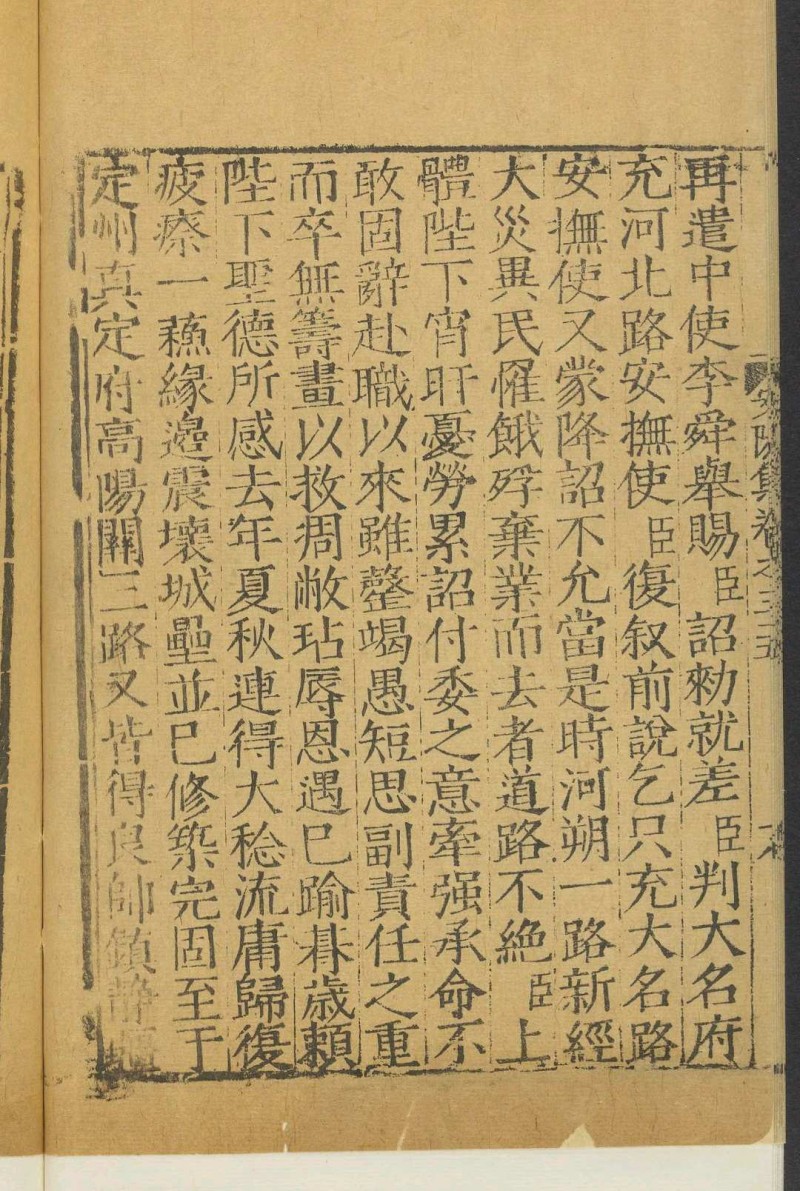 安陽集卷之三十五
再遣中使李舜舉賜臣詔勑就差臣判大名府
充河北路安撫使臣復叙前說乞只充大名路
安撫使又蒙降詔不允當是時河朔一路新經
大災異民罹餓殍棄業而去者道路不絶臣上
體陛下宵旰憂勞累詔付委之意牽强承命不
敢固辭赴職以來雖罄竭愚短思副責任之重
而卒無籌畫以救凋敝玷辱恩遇已踰朞歲頼
陛下聖德所感去年夏秋連得大稔流庸歸復
疲瘵一蘓緣邉震壞城壘並已修築完固至于
定州真定府高陽關三路又皆得良帥鎮静